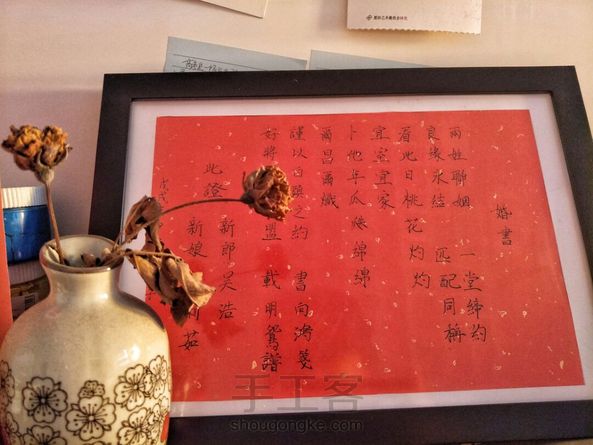 婚書
兩姓聯姻 一堂締約
良緣永結 匹配同稱
看此日桃花灼灼
宜室宜家
卜他年瓜瓞綿綿
爾昌爾熾
謹以白頭之約 書向鴻箋
好將 盟 載明鴛譜
此證 新郎吴浩
新娘 茹
戊戌
手工客
shougongke.com